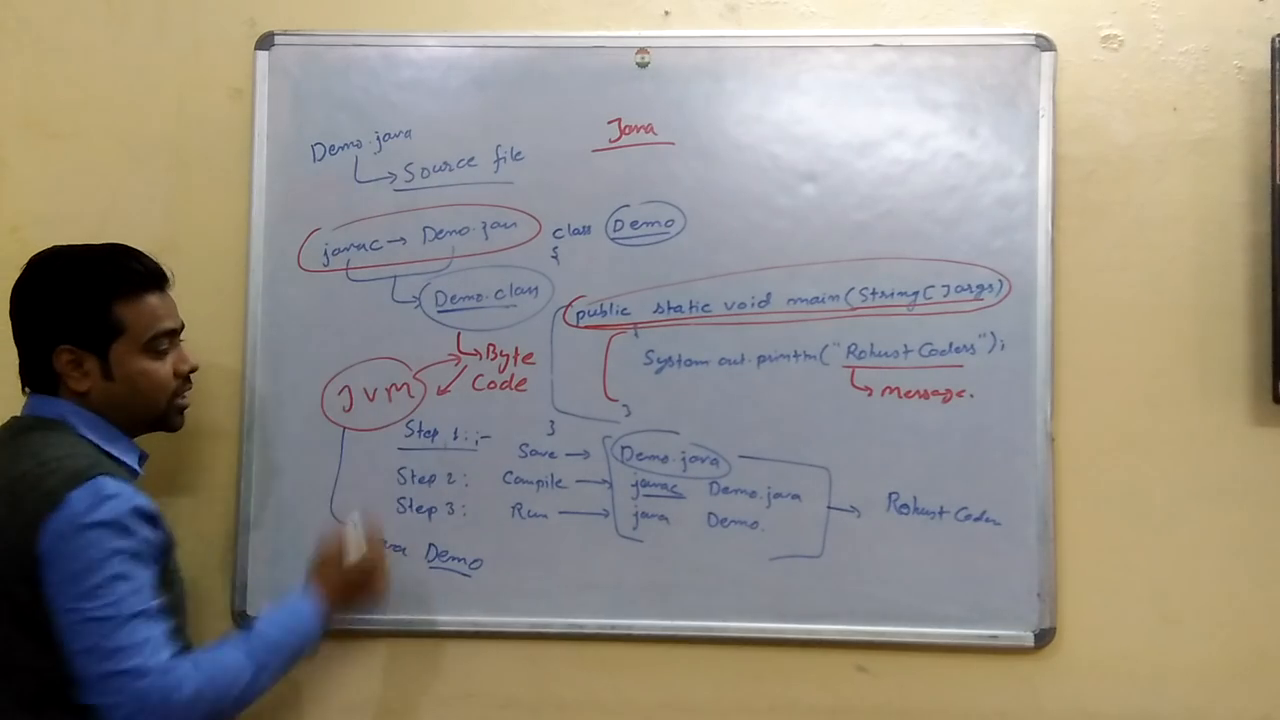 Java
Demo.java
Source file
javac → Demo.java
Demo.class
Byte
Code
JVM
class Demo
{
public static void main(String[]args)
{
System.out.println("Robust Coders");
message.
}
}
Step 1:- Save → Demo.java
Step 2: Compile → javac Demo.java
Step 3: Run → java Demo.
Robust Coder
Demo